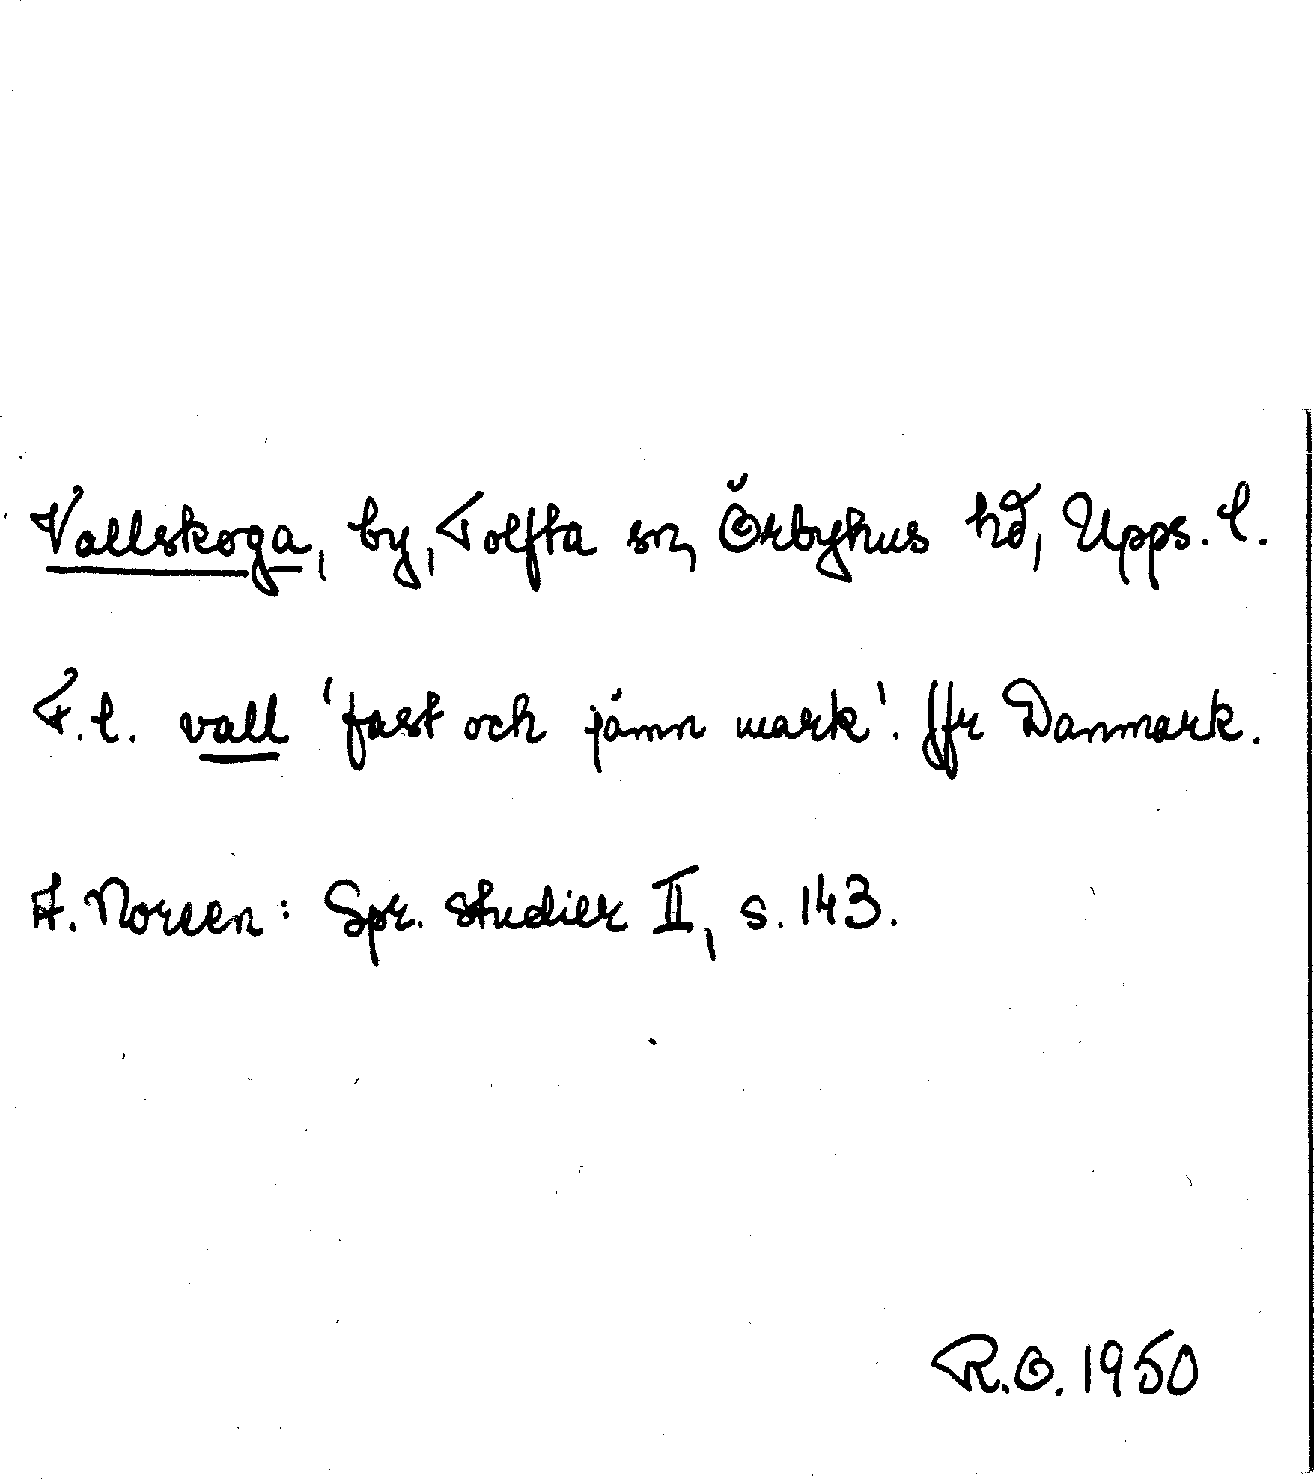 Vallskoga, by, Tolfta sn, Örbyhus hd, Upps. l.
F.l. vall 'fast och jämn mark'. Jfr Danmark.
A. Noreen: Spr. studier II, s. 143.
R.O. 1950